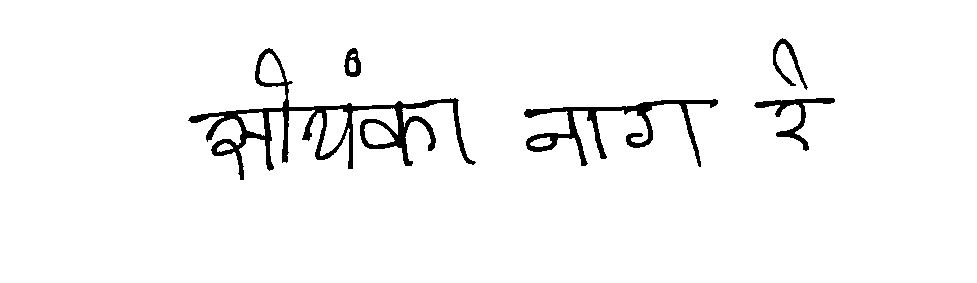 सीयंका नाग रे